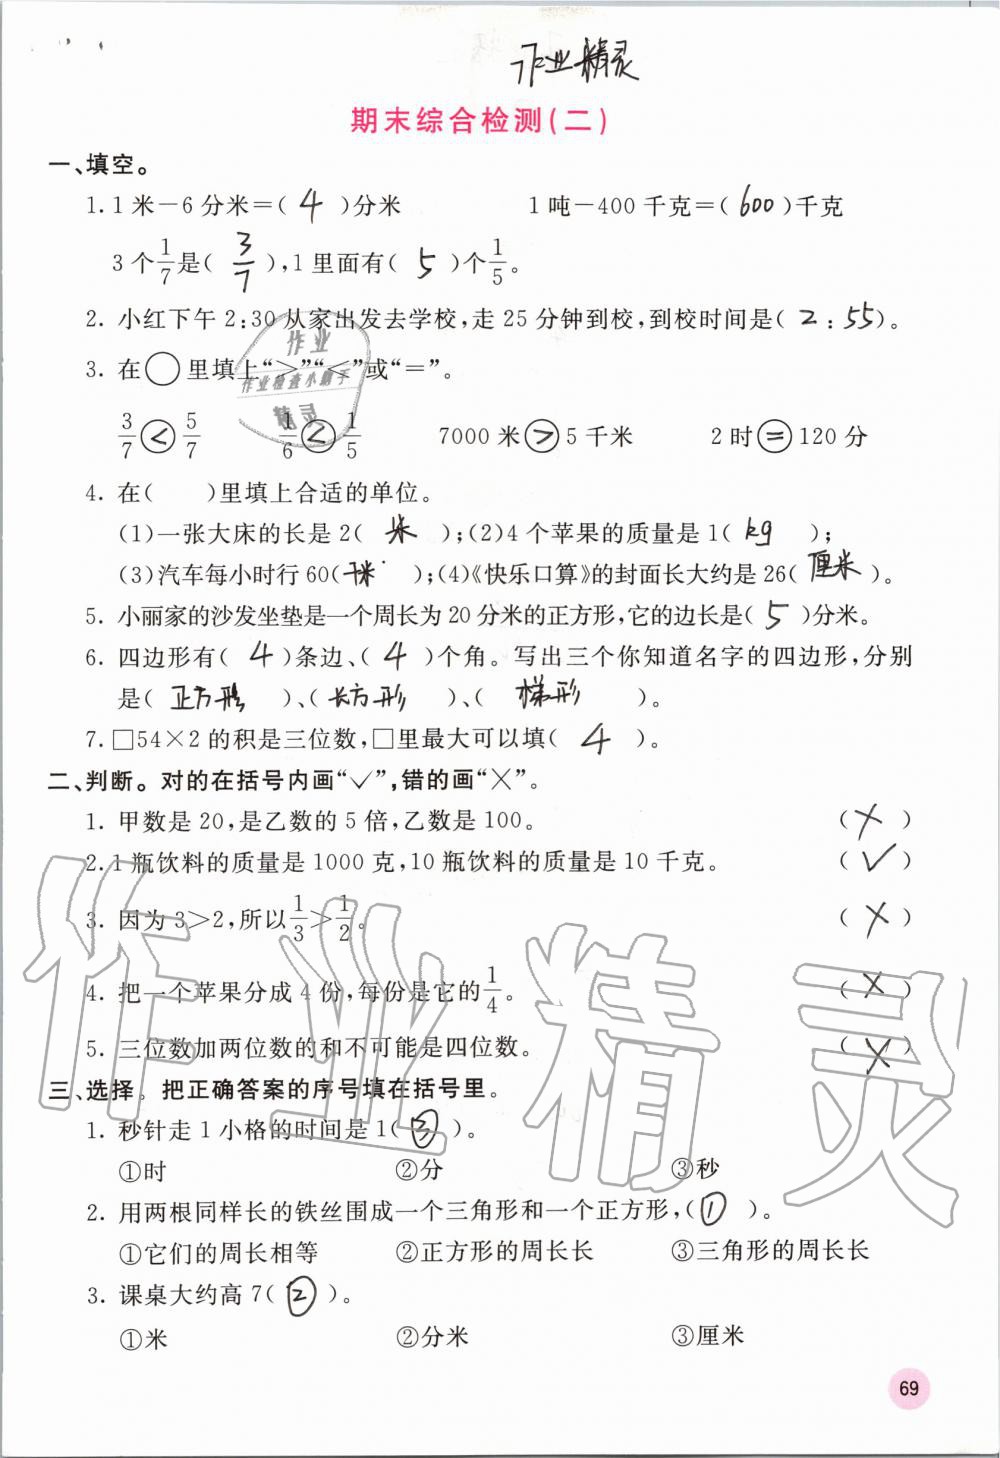 作业精灵
期末综合检测(二)
一、填空。
1. 1米－6分米＝( 4 )分米 1吨－400千克＝( 600 )千克
3个1/7是( 3/7 ),1里面有( 5 )个1/5。
2. 小红下午2:30从家出发去学校,走25分钟到校,到校时间是( 2:55 )。
3. 在○里填上“>”“<”或“=”。
3/7 < 5/7 1/6 < 1/5 7000米 > 5千米 2时 = 120分
4. 在( )里填上合适的单位。
(1)一张大床的长是2( 米 );(2)4个苹果的质量是1( kg );
(3)汽车每小时行60( 千米 );(4)《快乐口算》的封面长大约是26( 厘米 )。
5. 小丽家的沙发坐垫是一个周长为20分米的正方形,它的边长是( 5 )分米。
6. 四边形有( 4 )条边、( 4 )个角。写出三个你知道名字的四边形,分别
是( 正方形 )、( 长方形 )、( 梯形 )。
7. □54×2的积是三位数,□里最大可以填( 4 )。
二、判断。对的在括号内画“√”,错的画“×”。
1. 甲数是20,是乙数的5倍,乙数是100。 ( × )
2. 1瓶饮料的质量是1000克,10瓶饮料的质量是10千克。 ( √ )
3. 因为3>2,所以1/3>1/2。 ( × )
4. 把一个苹果分成4份,每份是它的1/4。 ( × )
5. 三位数加两位数的和不可能是四位数。 ( × )
三、选择。把正确答案的序号填在括号里。
1. 秒针走1小格的时间是1( ③ )。
①时 ②分 ③秒
2. 用两根同样长的铁丝围成一个三角形和一个正方形,( ① )。
①它们的周长相等 ②正方形的周长长 ③三角形的周长长
3. 课桌大约高7( ② )。
①米 ②分米 ③厘米
69
作业精灵
作业
作业检查小助手
精灵